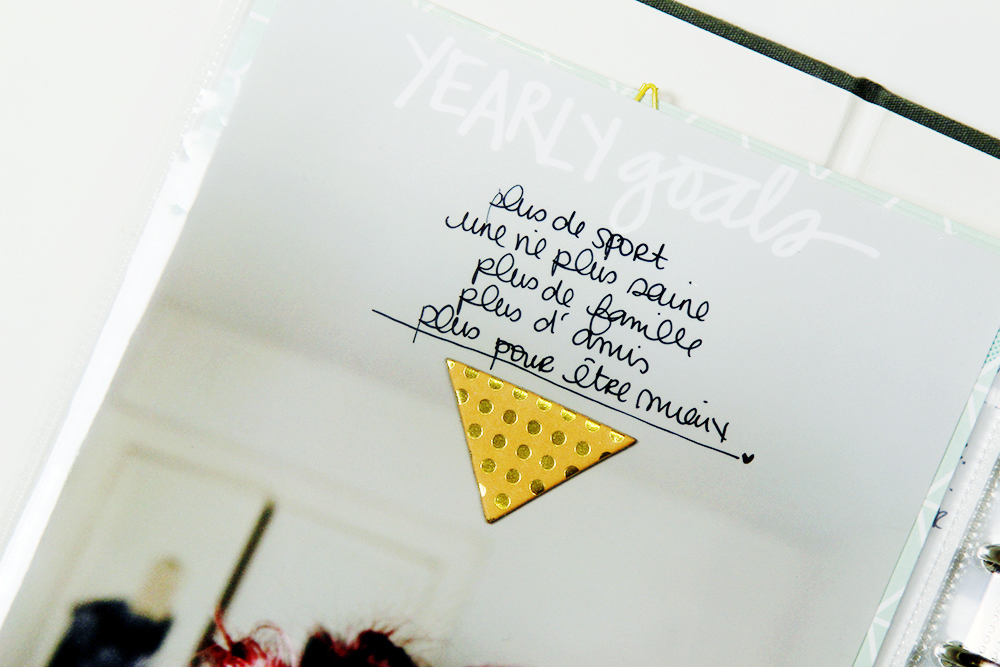 YEARLY goals
plus de sport
une vie plus saine
plus de famille
plus d'amis
plus pour être mieux